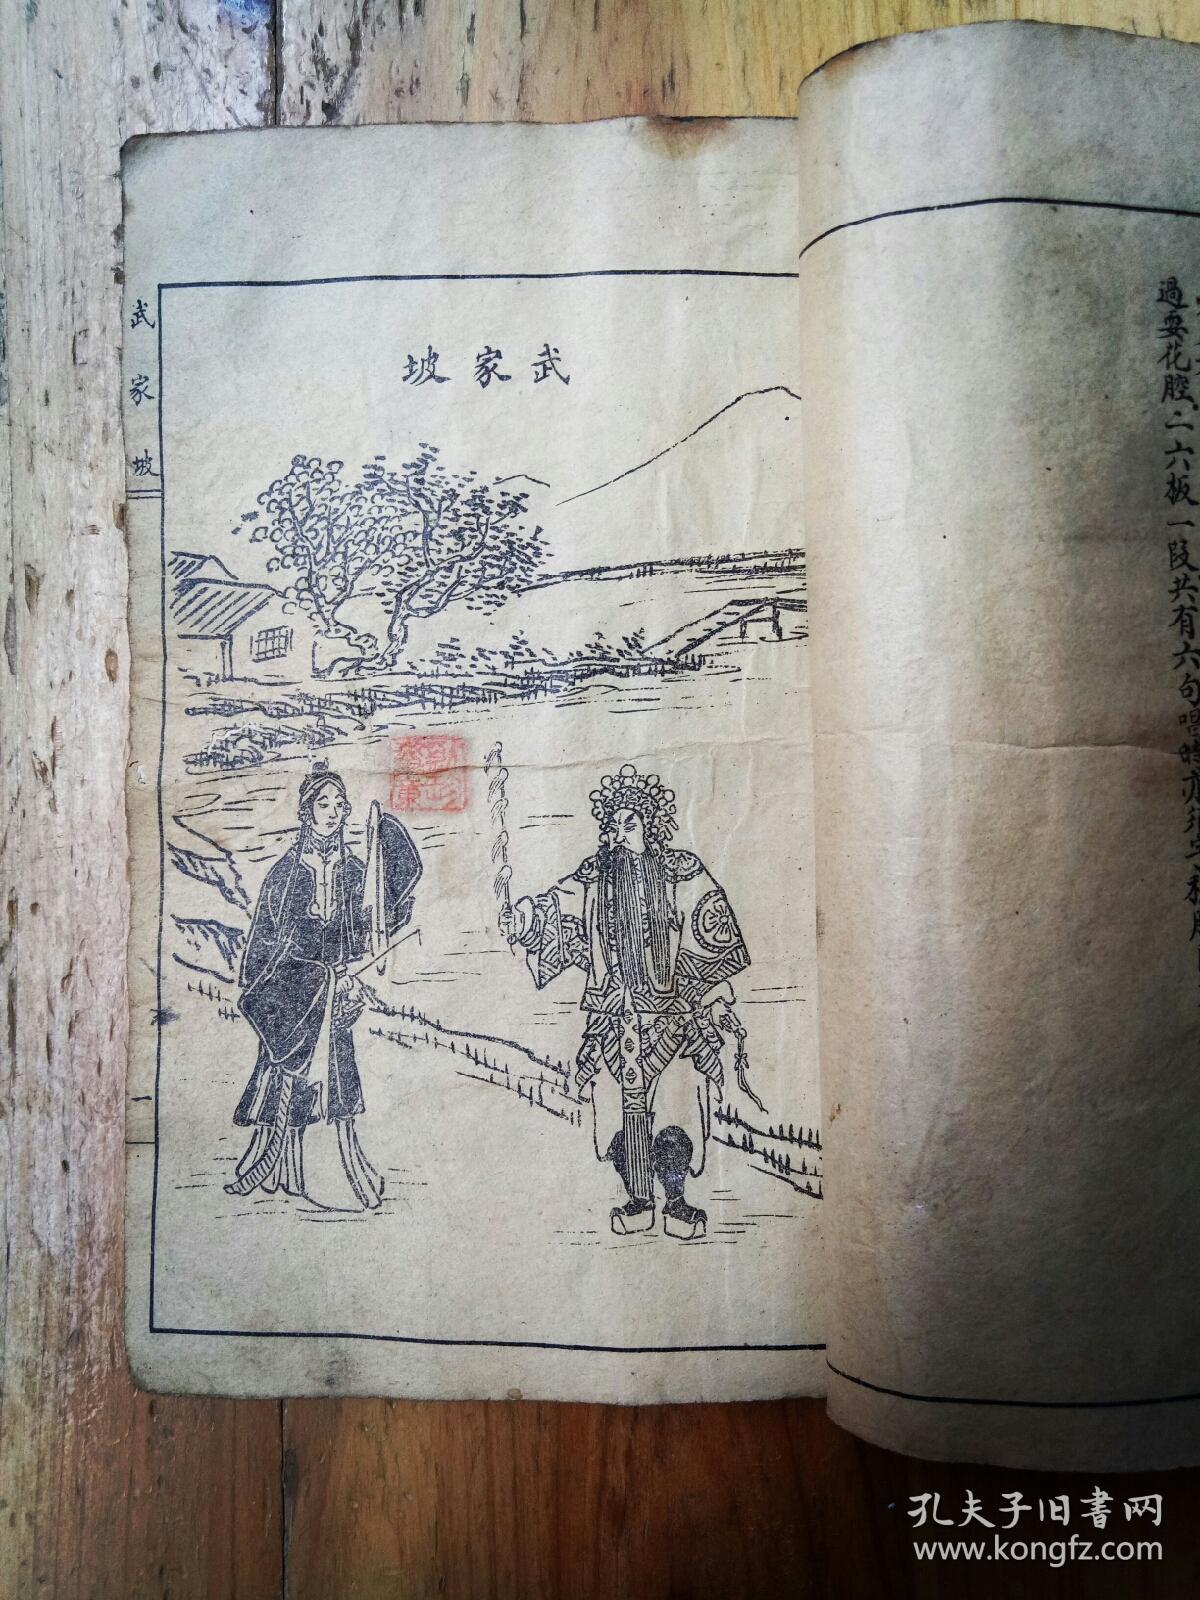 武家坡
武家坡
一
過要花腔二六板一段共有六句唱時亦須
孔夫子旧書网
www.kongfz.com